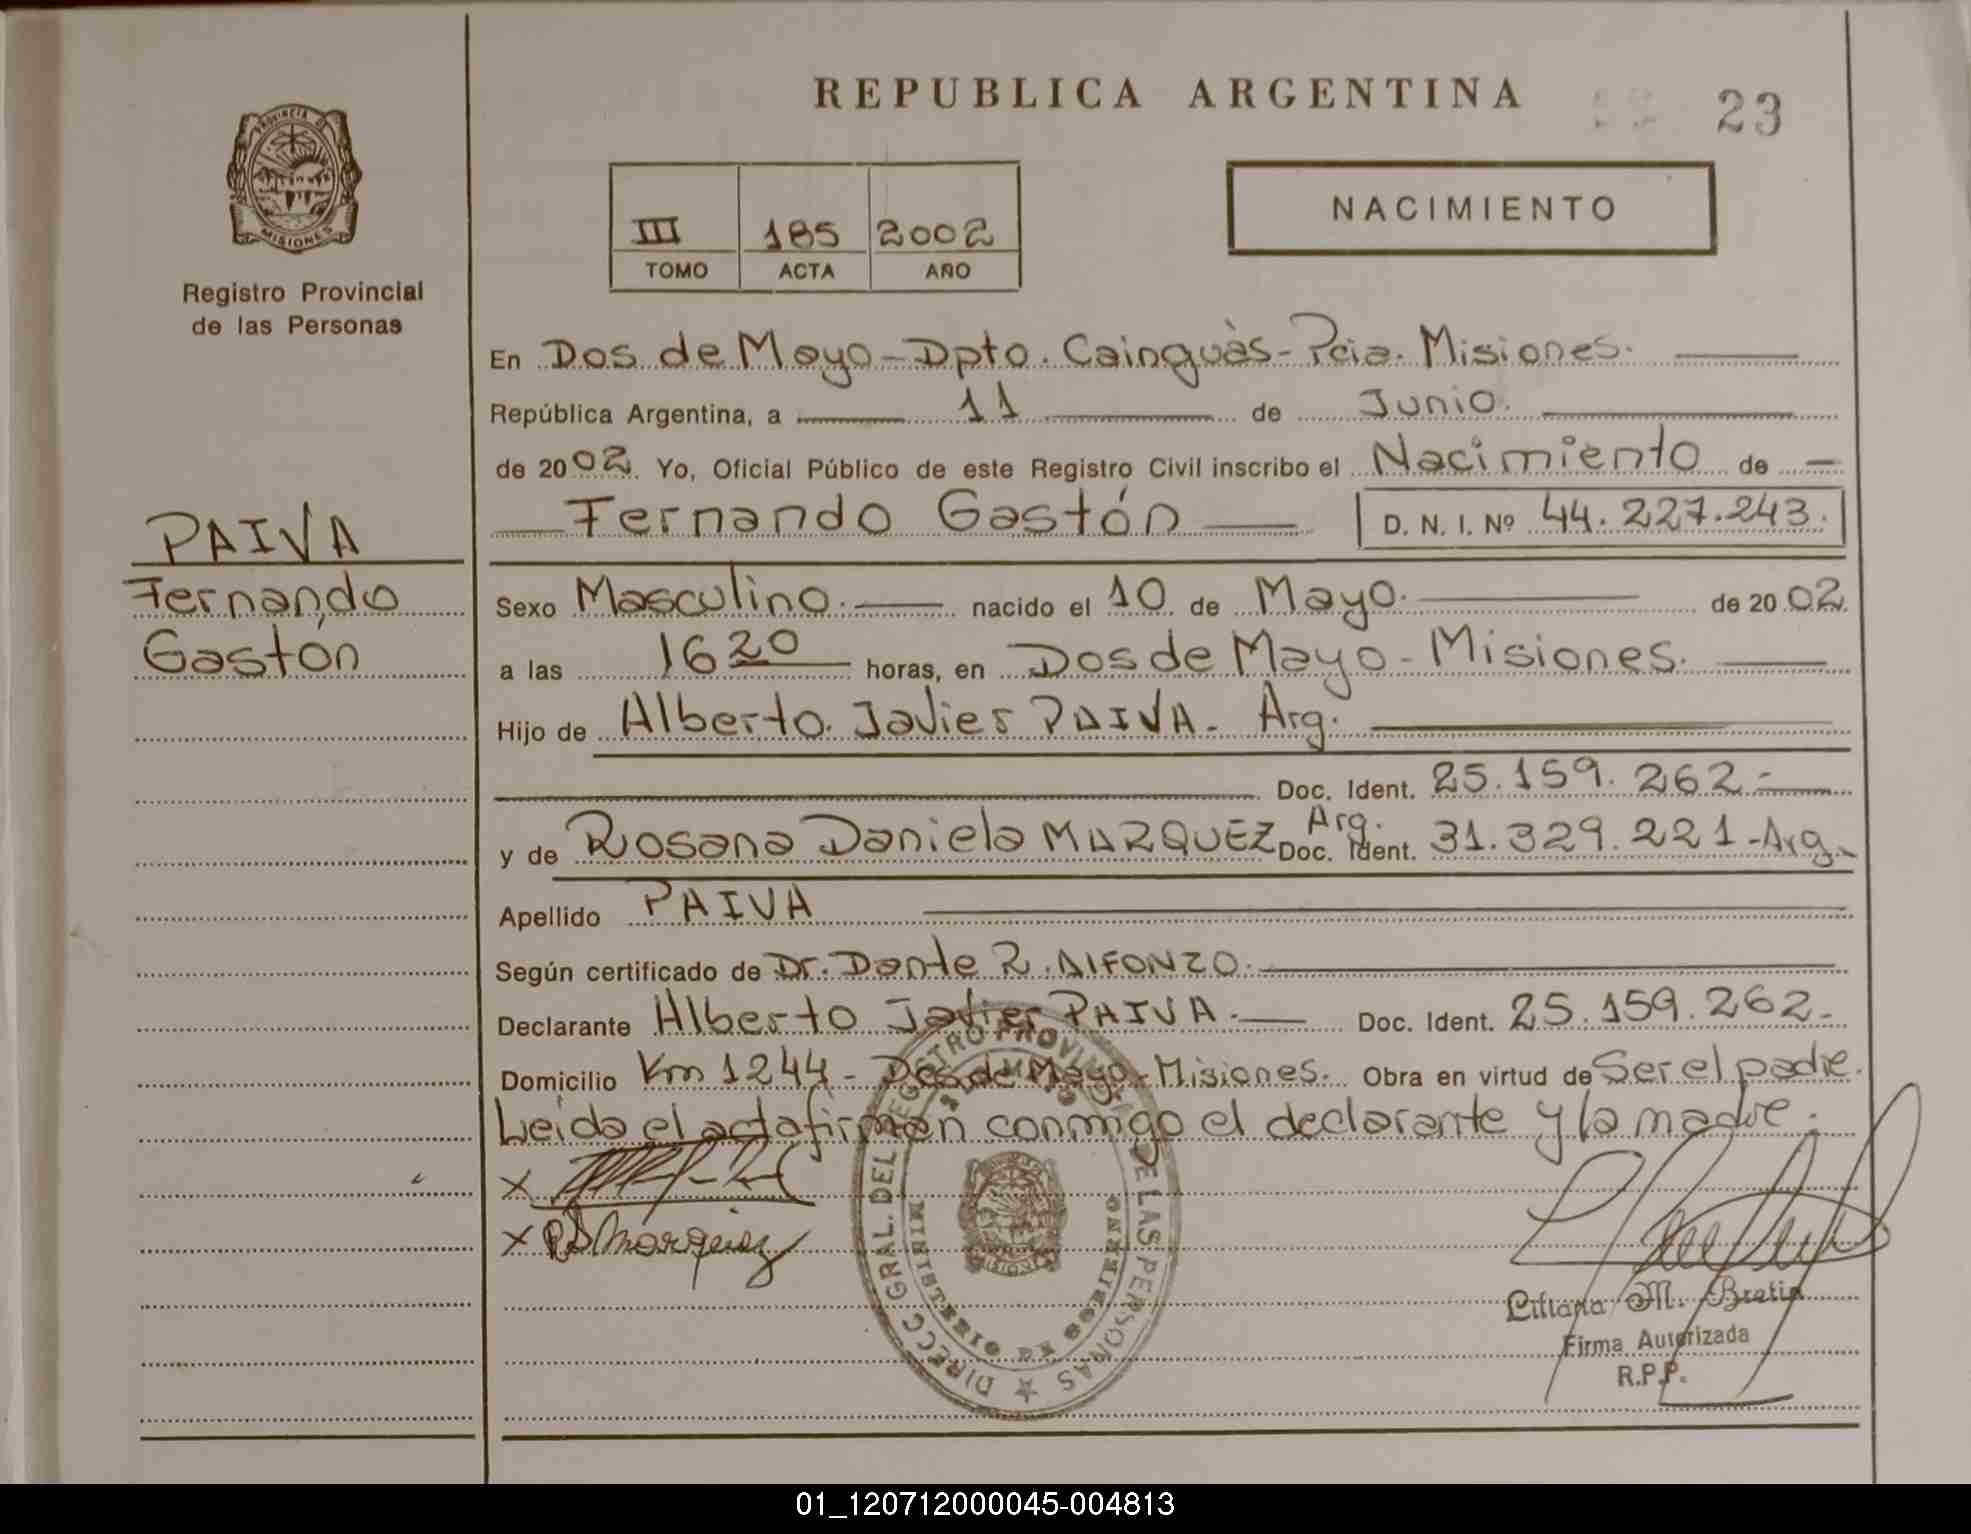 REPUBLICA ARGENTINA
23
PROVINCIA DE
MISIONES
Registro Provincial
de las Personas
NACIMIENTO
III 185 2002
TOMO ACTA AÑO
En Dos de Mayo - Dpto. Cainguàs - Pcia. Misiones.
República Argentina, a 11 de Junio.
de 2002. Yo, Oficial Público de este Registro Civil inscribo el Nacimiento de
Fernando Gastón D. N. I. Nº 44.227.243.
PAIVA
Fernando
Gastón
Sexo Masculino. nacido el 10 de Mayo. de 2002.
a las 1620 horas, en Dos de Mayo - Misiones.
Hijo de Alberto Javier PAIVA - Arg.
Doc. Ident. 25.159.262 -
Arg.
y de Rosana Daniela MARQUEZ Doc. Ident. 31.329.221 - Arg.
Apellido PAIVA
Según certificado de Dr. Dante R. AlFONZO.
Declarante Alberto Javier PAIVA. Doc. Ident. 25.159.262 -
Domicilio Km 1244 - Dos de Mayo - Misiones. Obra en virtud de Ser el padre.
Leída el acta firman conmigo el declarante y la madre.
x
x RD Marquez
DIRECC GRAL. DEL REGISTRO PROVINCIAL DE LAS PERSONAS
MINISTERIO DE GOBIERNO
MISIONES
Liliana M. Bretin
Firma Autorizada
R.P.P.
01_120712000045-004813